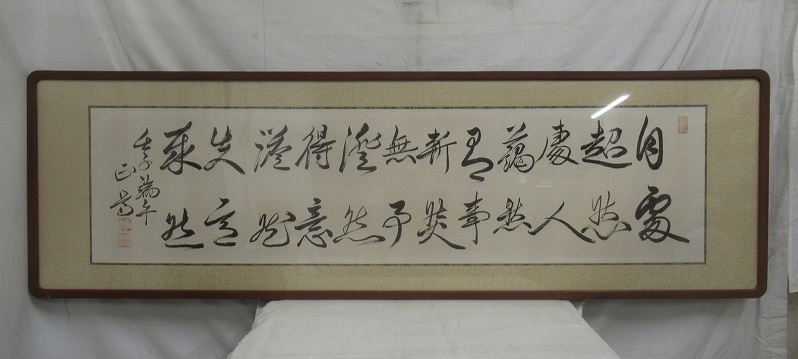 自處
超然
處人
藹然
有事
斬然
無事
澄然
得意
澹然
失意
泰然
壬子端午
正篤